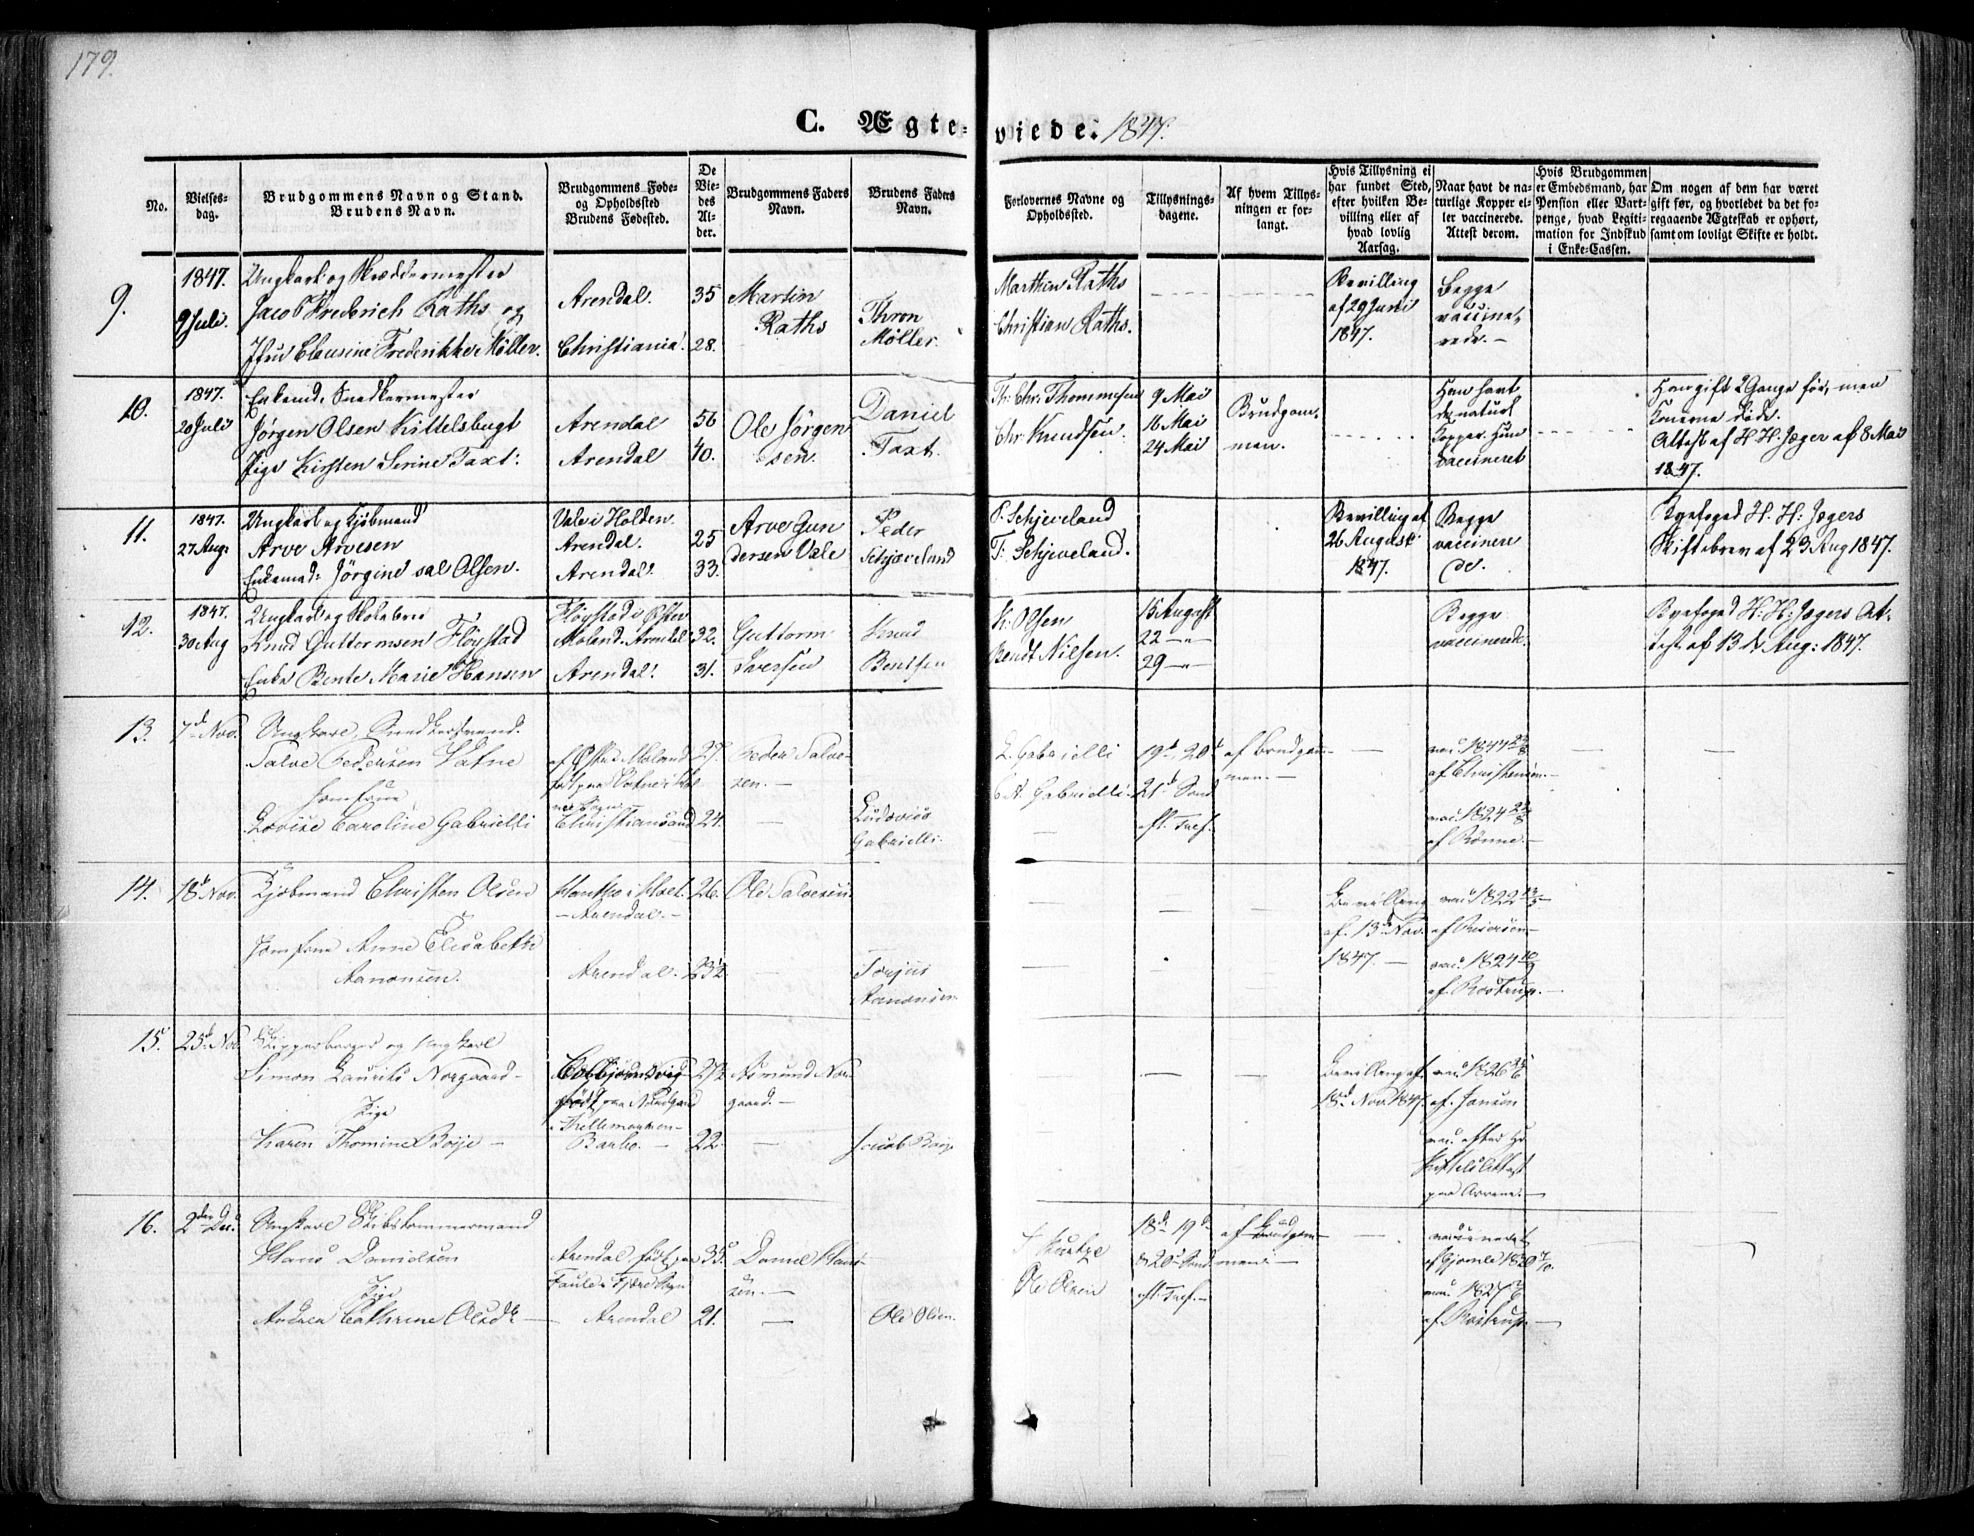 179.
C. Ægteviede. 1847.
No.
Vielsesdag.
Brudgommens Navn og Stand.
Brudens Navn.
Brudgommens Føde- og Opholdsted
Brudens Fødested.
De Viedes Alder.
Brudgommens Faders Navn.
Brudens Faders Navn.
Forlovernes Navne og Opholdsted.
Tillysningsdagene.
Af hvem Tillysningen er forlangt.
Hvis Tillysning ei har fundet Sted, efter hvilken Bevilling eller af hvad lovlig Aarsag.
Naar havt de naturlige Kopper eller vaccinerede. Attest derom.
Hvis Brudgommen er Embedsmand, har Pension eller Vartpenge, hvad Legitimation for Indskud i Enke-Cassen.
Om nogen af dem har været gift før, og hvorledet da det foregaaende Ægteskab er ophørt, samt om lovligt Skifte er holdt.
9.
1847.
9 Juli.
Ungkarl og Skræddermester
Jacob Frederich Raths og
Jfru Clausine Frederikke Møller.
Arendal.
Christiania.
35
28.
Martin
Raths
Thron
Møller.
Marthin Raths
Christian Raths.
Bevilling
af 29 Juni
1847.
Begge
vaccine,
rede. –
10.
1847.
20 Juli
Enkemd, Snedkermester
Jørgen Olsen Kittelsbugt
Pige Kirsten Serine Taxt.
Arendal
Arendal
56
40.
Ole Jørgen
sen.
Daniel
Taxt.
Th: Chr: Thommesen
Chr Knudsen.
9 Mai
16 Mai
24 Mai
Brudgom,
men.
Han havt
de naturl
Kopper. Hun
vaccineret
Han gift 2 Gange før, men
Konerne døde.
Attest af H H. Jæger af 8 Mai
1847.
11.
1847.
27 Aug.
Ungkarl og Kjøbmand
Arve Arvesen
Enkemad: Jørgine sal Olsen.
Vale i Holden.
Arendal.
Arendal.
25
33.
Arve Gun
dersen Vale
Peder
Schjeveland
P. Schjeveland
T: Schjeveland.
Bevilling af
26 August
1847.
Begge
vaccinere
de.
Byefoged H: H: Jægers
Skiftebrev af 23 Aug 1847.
12.
1847.
30 Aug
Ungkarl og
Knud Guttormsen Fløystad
Enke Bente Marie Hansen
Fløystad i Øster
Moland. Arendal
Arendal.
32.
31.
Guttorm
Iversen
Knud
Bentsen
K: Olsen
Bendt Nilsen.
15 August
22 –"–
29 –"–
Begge
vaccinerede.
Byefoged H: H: Jægers At-
test af 13 d Aug: 1847.
13.
7d Nov.
Ungkarl, Snedkersvend.
Salve Pedersen Vatne
Jomfrue
Lovise Caroline Gabrielli
af Østre Moland
Christiansand
27.
24.
Peder Salve-
sen. –
Ludovico
Gabrielli.
L. Gabrielli
C. A. Gabrielli.
19d 20d
21d Sønd
eft. Tref.
af Brudgom-
men. –
vac. 1844
af Christensen. –
vac. 1824
af Rønne. –
14.
18d Nov.
Kjøbmand Christen Olsen
Jomfrue Anne Elisabeth
Aanonsen.
– Arendal. –
Arendal.
26.
23½
Ole Salvesen
Torjus
Aanonsen
Bevilling
af. 13d Nov.
1847. –
vac. 1822
vac. 1824
af. Rostrup. –
15.
25d Nov.
Skipperborger og Ungkarl
Simon Laurits Norgaard –
Pige
Karen Thomine Boije –
Colbjørnsvig
født paa Nordgaard
Barbo. –
27½
22.
Asmund Nor-
gaard. –
Jacob Boije
Bevilling af.
18d Nov 1847.
vac. 1826
af. Jansen
vac. efter
16.
2den Dec.
Ungkarl Skibstømmermand
Hans Danielsen
Pige
Andrea Cathrine Olsdtr –
Arendal. født paa
Fjære Sogn
Arendal
35.
21.
Daniel Hans-
sen. –
Ole Olsen.
Ole Olsen
18d 19d
& 20d Sønd
eft. Tref. –
af Brudgom-
men. –
vaccineret
af Gjomle 1820
vac. 1827
af. Rostrup. –